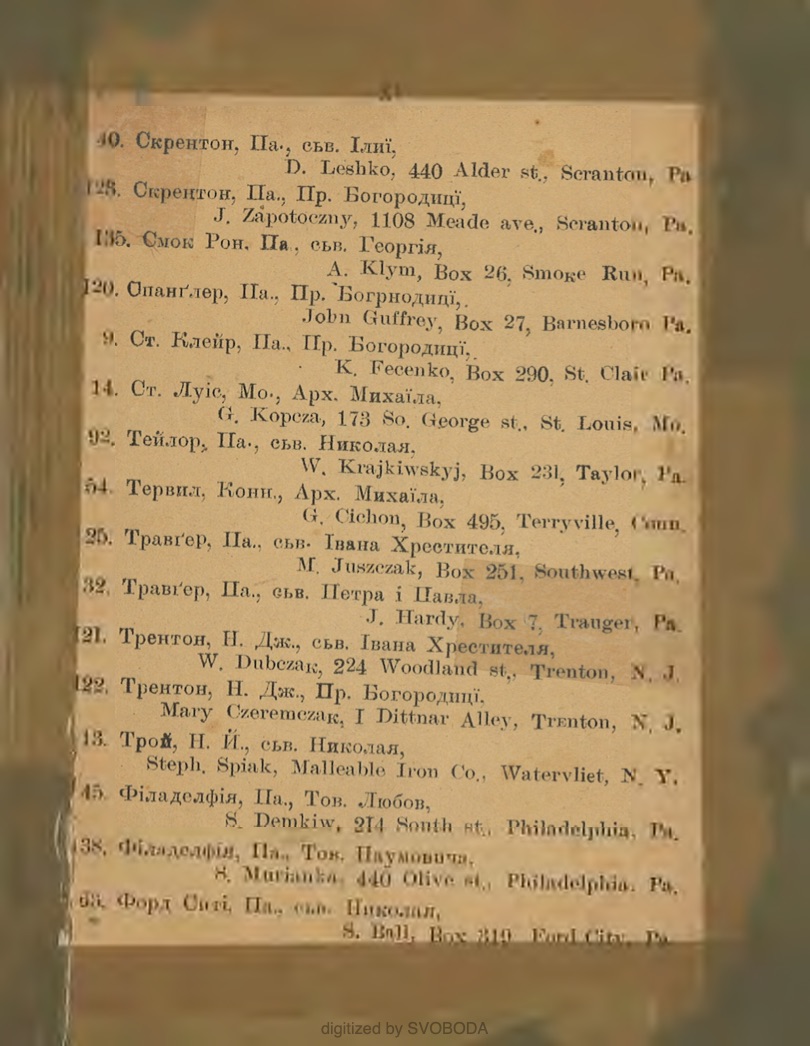 XI
40. Скрентон, Па., сьв. Ілиї,
D. Leshko, 440 Alder st., Scranton, Pa
128. Скрентон, Па., Пр. Богородиці,
J. Zapotoczny, 1108 Meade ave., Scranton, Pa.
135. Смок Рон, Па., сьв. Георгія,
A. Klym, Box 26, Smoke Run, Pa.
120. Спанґлер, Па., Пр. Богрнодиці,
John Guffrey, Box 27, Barnesboro Pa.
9. Ст. Клейр, Па., Пр. Богородиці,
K. Fecenko, Box 290, St. Clair Pa.
14. Ст. Луіс, Мо., Арх. Михаїла,
G. Kopcza, 173 So. George st., St. Louis, Mo.
92. Тейлор, Па., сьв. Николая,
W. Krajkiwskyj, Box 231, Taylor, Pa.
54. Тервил, Конн., Арх. Михаїла,
G. Cichon, Box 495, Terryville, Conn.
25. Травґер, Па., сьв. Івана Хрестителя,
M. Juszczak, Box 251, Southwest, Pa.
32. Травґер, Па., сьв. Петра і Павла,
J. Hardy, Box 7, Trauger, Pa.
121. Трентон, Н. Дж., сьв. Івана Хрестителя,
W. Dubczak, 224 Woodland st., Trenton, N. J.
122. Трентон, Н. Дж., Пр. Богородиці,
Mary Czeremczak, I Dittnar Alley, Trenton, N. J.
13. Трой, Н. Й., сьв. Николая,
Steph. Spiak, Malleable Iron Co., Watervliet, N. Y.
45. Філаделфія, Па., Тов. Любов,
S. Demkiw, 214 South st., Philadelphia, Pa.
138. Філаделфія, Па., Тов. Наумовича,
S. Murianka, 440 Olive st., Philadelphia, Pa.
Форд Ситі, Па., сьв. Николая,
S. Ball, Box 319 Ford City, Pa.
digitized by SVOBODA